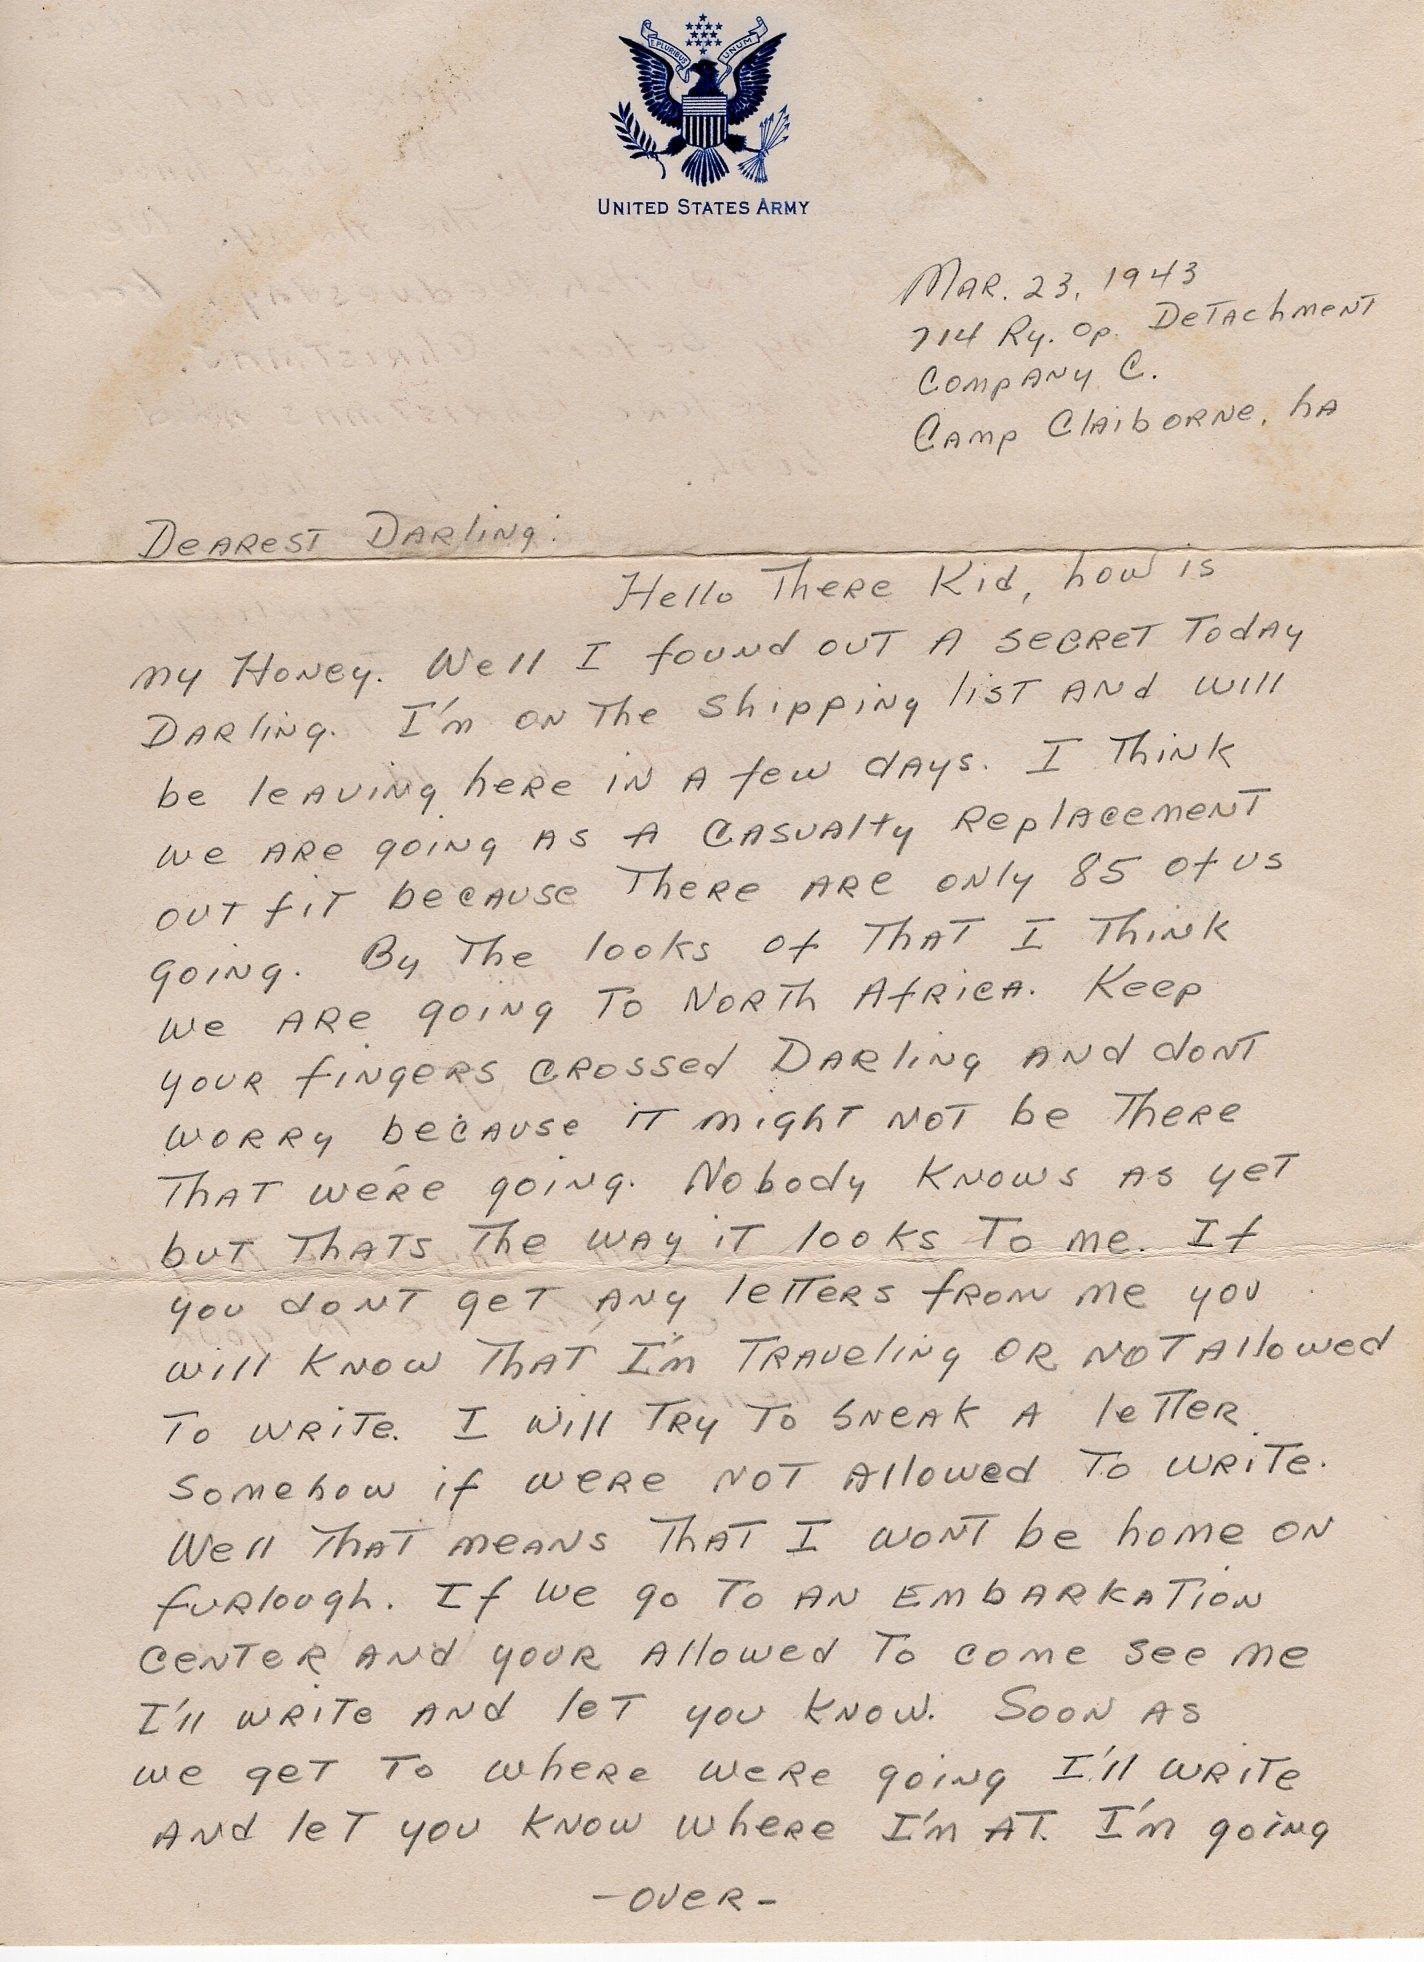 E PLURIBUS UNUM
UNITED STATES ARMY
Mar. 23, 1943
714 Ry. Op. Detachment
Company C.
Camp Claiborne, LA
Dearest Darling:
Hello There Kid, how is
my Honey. Well I found out a secret Today
Darling. I'm on The shipping list and will
be leaving here in a few days. I Think
we are going as a casualty replacement
out fit because There are only 85 of us
going. By The looks of That I Think
we are going To North Africa. Keep
your fingers crossed Darling and dont
worry because it might not be There
That we're going. Nobody knows as yet
but Thats The way it looks To me. If
you dont get any letters from me you
will know That I'm Traveling or not allowed
To write. I will Try To sneak a letter
somehow if were not allowed To write.
Well That means That I wont be home on
furlough. If we go To an embarkation
center and your allowed To come see me
I'll write and let you know. Soon as
we get To where were going I'll write
and let you know where I'm at. I'm going
-over-